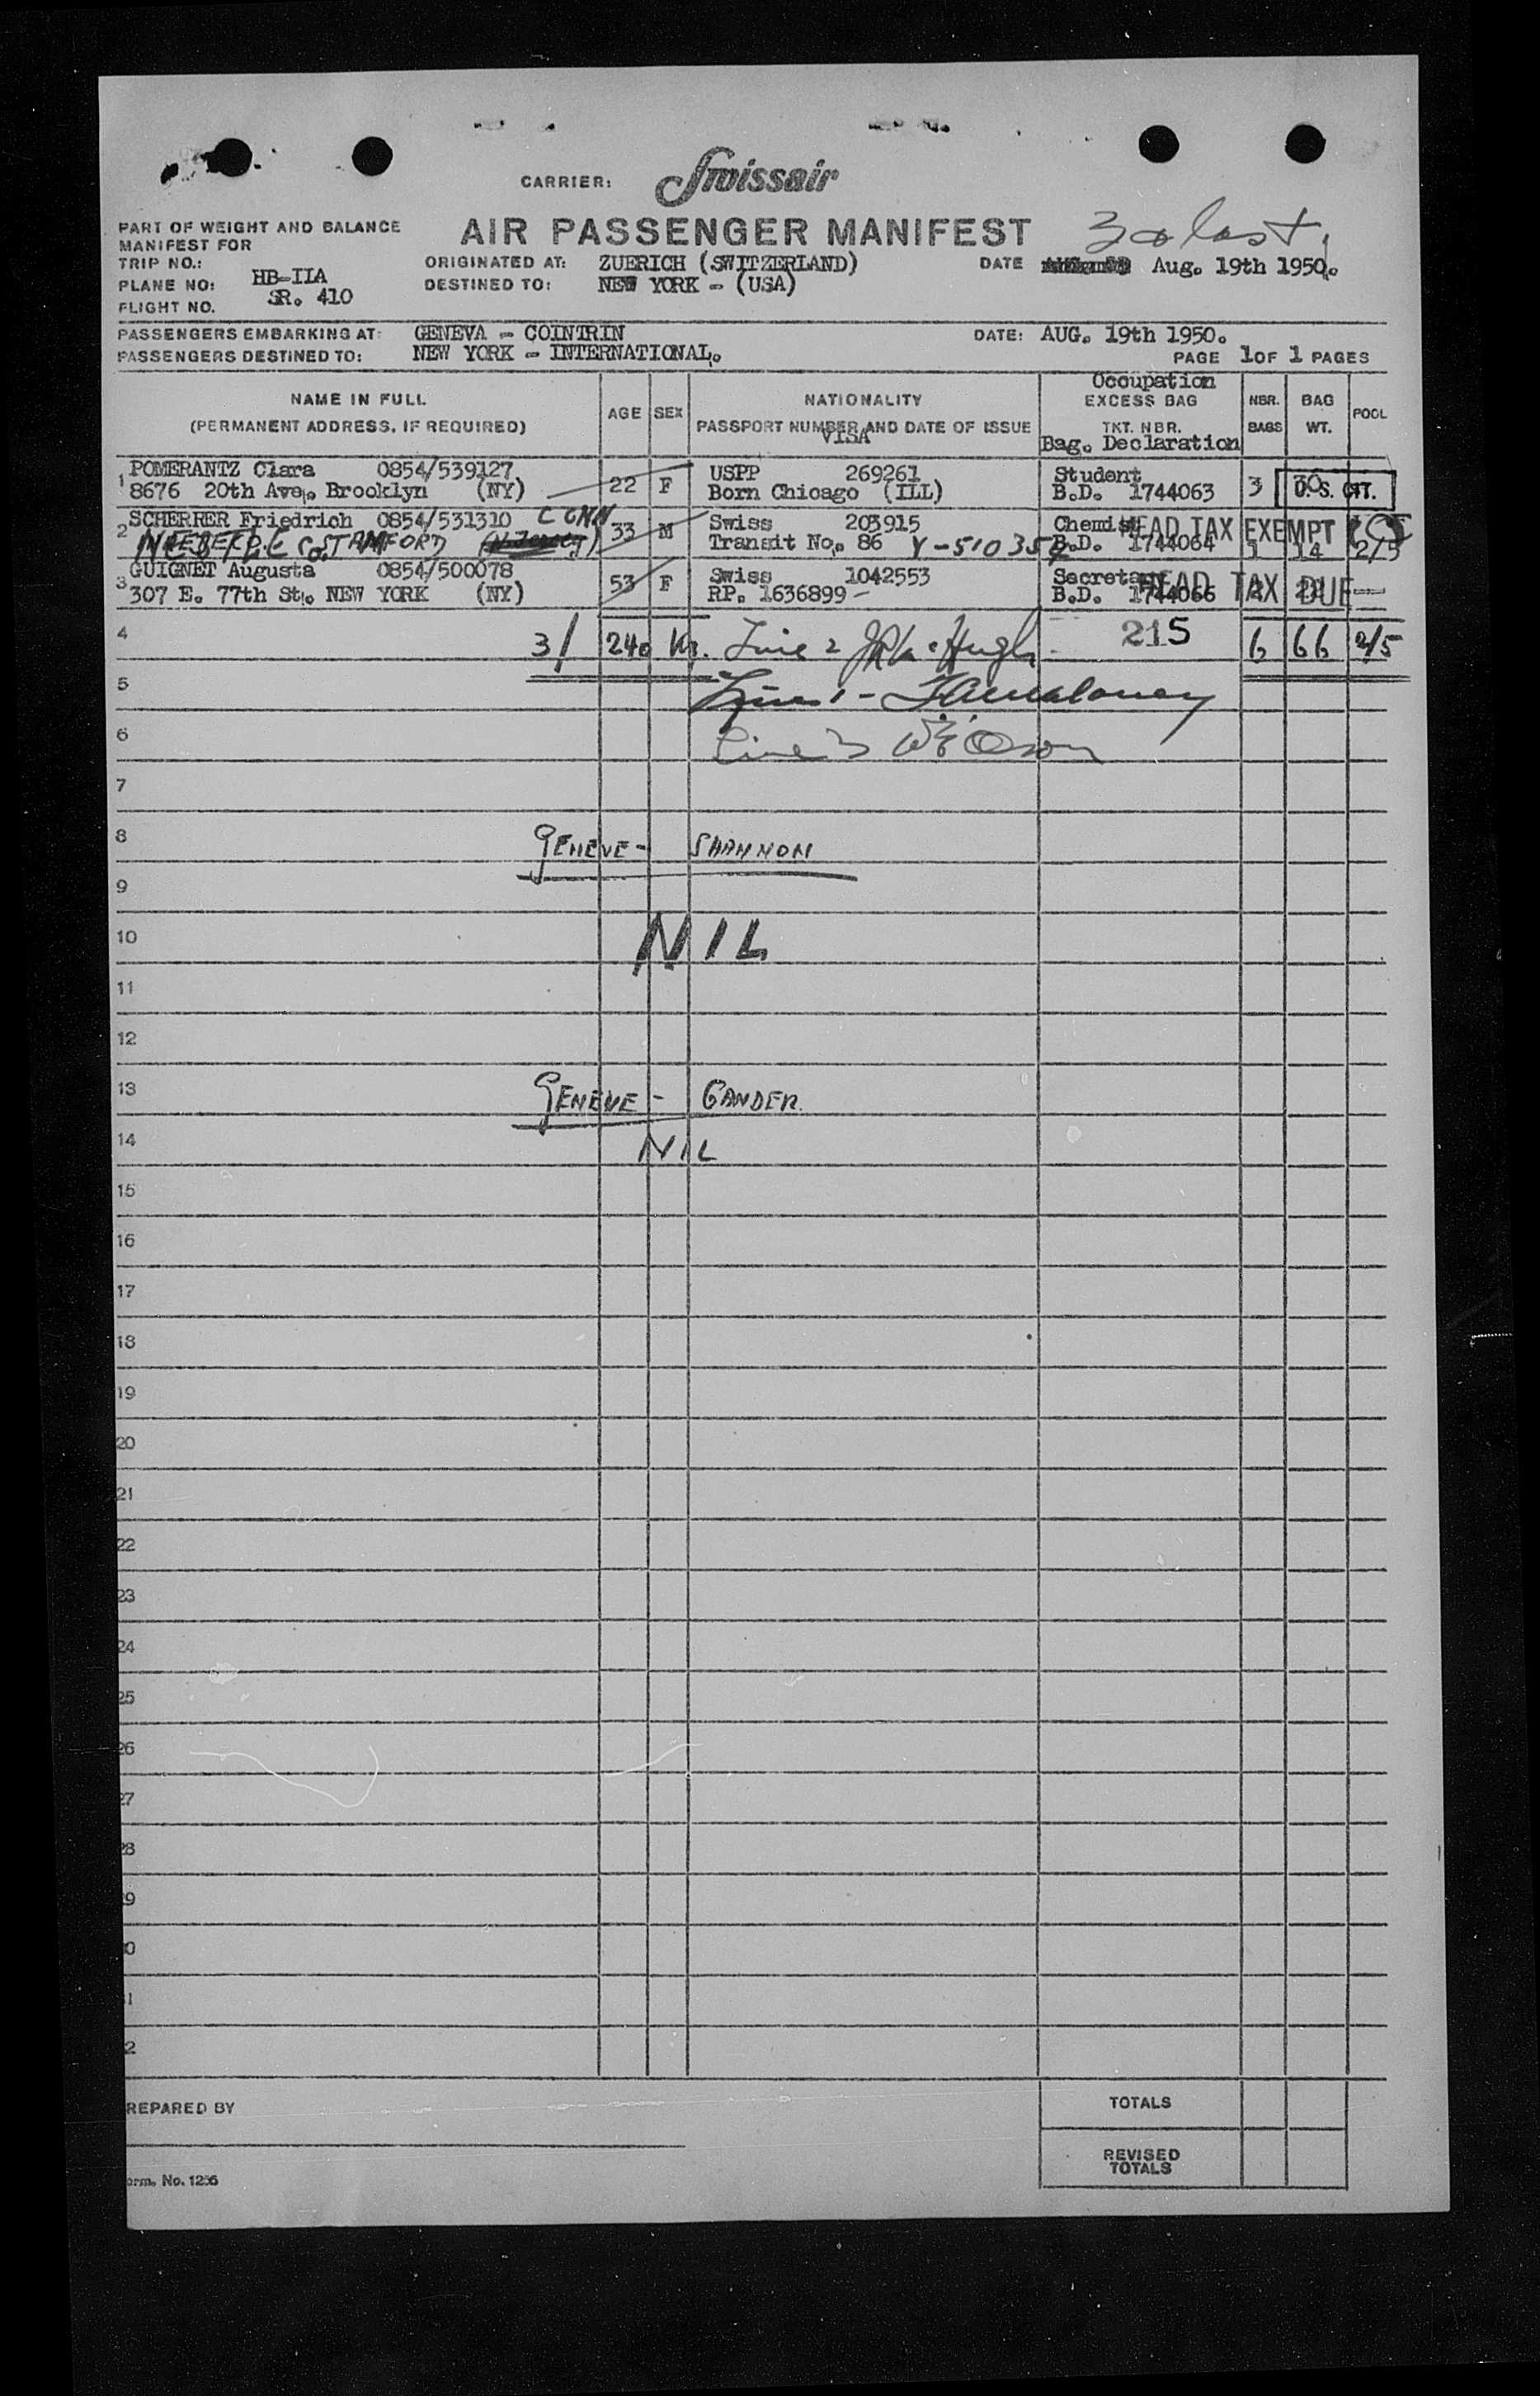 CARRIER: Swissair
PART OF WEIGHT AND BALANCE
MANIFEST FOR
AIR PASSENGER MANIFEST
TRIP NO.:
PLANE NO: HB-IIA
FLIGHT NO. SR. 410
ORIGINATED AT: ZUERICH (SWITZERLAND)
DESTINED TO: NEW YORK - (USA)
DATE Aug. 19th 1950.
PASSENGERS EMBARKING AT: GENEVA - COINTRIN
DATE: AUG. 19th 1950.
PASSENGERS DESTINED TO: NEW YORK - INTERNATIONAL.
PAGE 1 OF 1 PAGES
NAME IN FULL
(PERMANENT ADDRESS, IF REQUIRED)
AGE
SEX
NATIONALITY
PASSPORT NUMBER AND DATE OF ISSUE
VISA
Occupation
EXCESS BAG
TKT. NBR.
Bag. Declaration
NBR.
BAGS
BAG
WT.
POOL
1 POMERANTZ Clara 0854/539127 22 F USPP 269261 Student 3 U.S. CIT.
8676 20th Ave. Brooklyn (NY) Born Chicago (ILL) B.D. 1744063
2 SCHERRER Friedrich 0854/531310 CONN 33 M Swiss 203915 Chemist HEAD TAX EXEMPT
STAMFORD Transit No. 86 B.D. 1744064 1 14 2/5
3 GUIGNET Augusta 0854/500078 53 F Swiss 1042553 Secretary HEAD TAX DUE
307 E. 77th St. NEW YORK (NY) RP. 1636899 - B.D. 1744066
4 3/ 240 Line 2 215 6 66 2/5
5 Line 1 -
6 Line 3
7
8 GENEVE - SHANNON
9
10 NIL
11
12
13 GENEVE - GANDER
14 NIL
15
16
17
18
19
20
21
22
23
24
25
26
27
28
29
30
31
32
REPARED BY
TOTALS
REVISED
TOTALS
orm. No. 1256